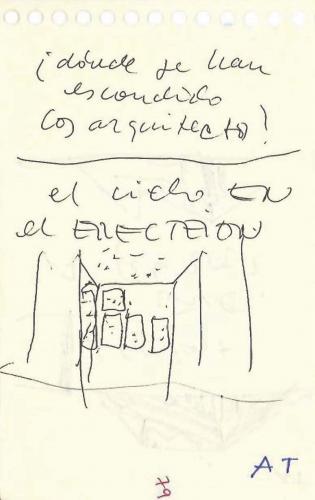 ¡dónde se han
escondido
los arquitectos!
el cielo EN
el
A T
79